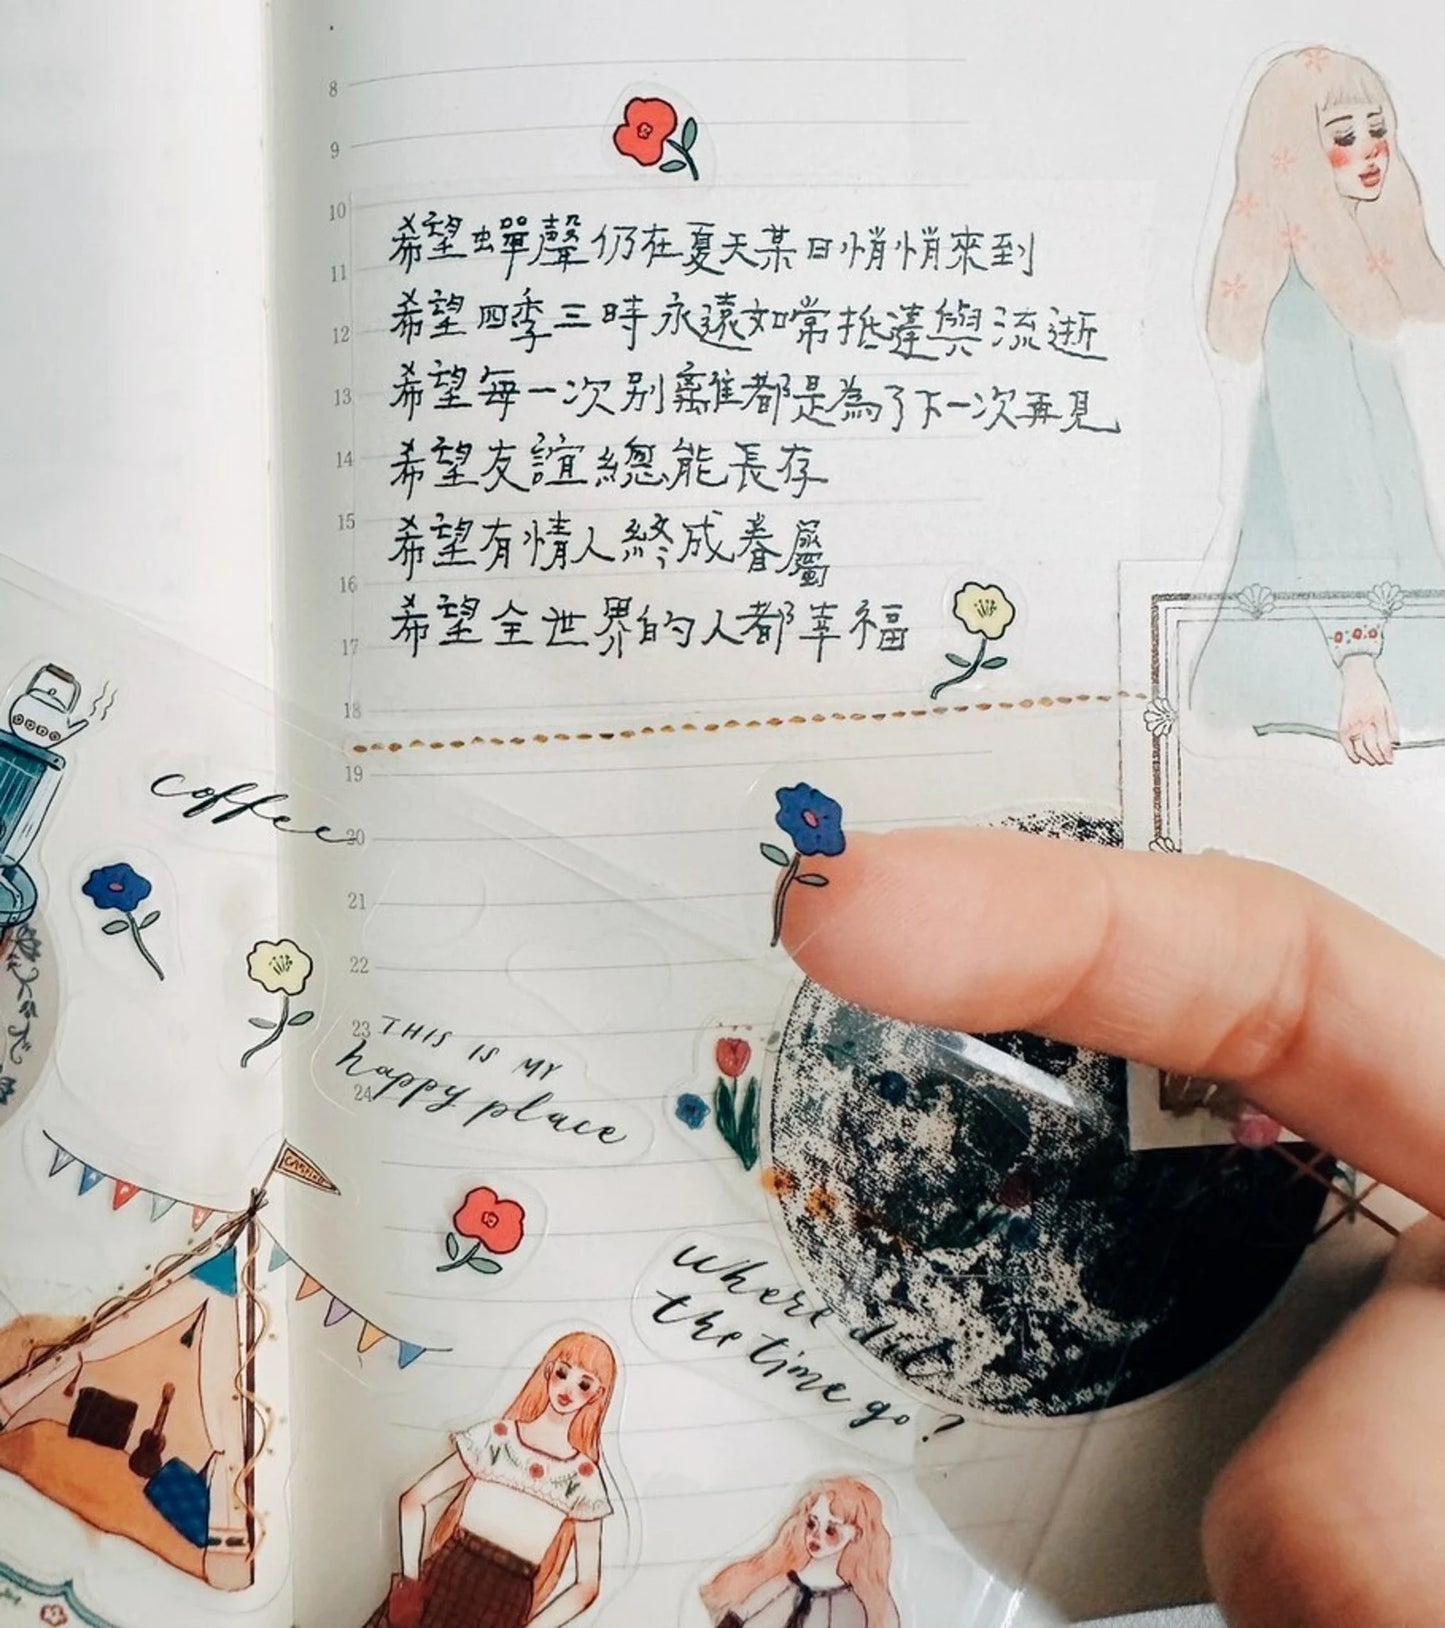 8
9
10
希望蟬聲仍在夏天某日悄悄來到
11
希望四季三時永遠如常抵達與流逝
12
希望每一次別離都是為了下一次再見
13
希望友誼總能長存
14
希望有情人終成眷屬
15
16
希望全世界的人都幸福
17
18
19
coffee
20
21
22
23
THIS IS MY
happy place
24
CAMPING
where did
the time go?